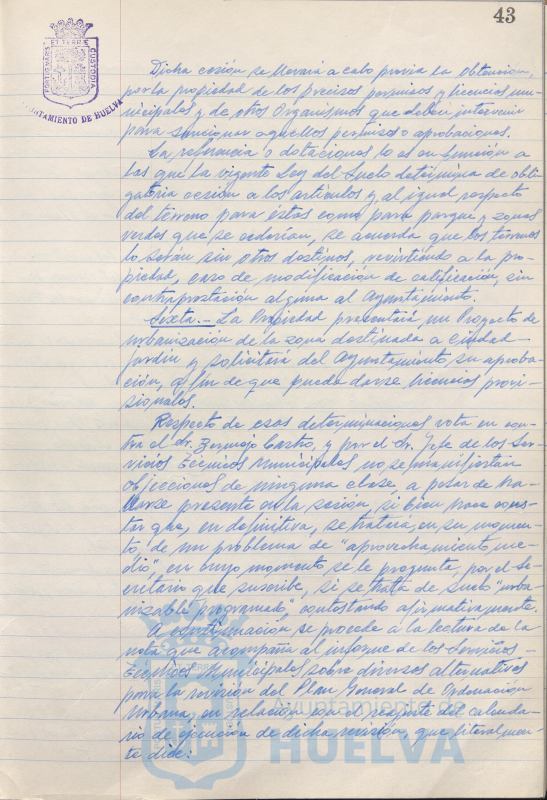 43
PORTUS MARIS ET TERRÆ CUSTODIA
AYUNTAMIENTO DE HUELVA
Dicha cesión se llevará a cabo previa la obtención,
por la propiedad de los precisos permisos y licencias mu-
nicipales y de otros Organismos que deban intervenir
para sancionar aquellos permisos o aprobaciones.
La referencia a dotaciones lo es en función a
las que la vigente Ley del Suelo determina de obli-
gatoria cesión a los artículos y, al igual respecto
del terreno para éstas como para parque y zonas
verdes que se cederían, se acuerda que los terrenos
lo serán sin otros destinos, revirtiendo a la pro-
piedad, caso de modificación de calificación, sin
contraprestación alguna al Ayuntamiento.
Sexta.- La Propiedad presentará un Proyecto de
urbanización de la zona destinada a ciudad
jardín y solicitará del Ayuntamiento su aproba-
ción, a fin de que pueda darse licencias provi-
sionales.
Respecto de esas determinaciones vota en con-
tra el Sr. Bermejo Castro, y por el Sr. Jefe de los Ser-
vicios Técnicos Municipales no se manifiestan
objecciones de ninguna clase, a pesar de ha-
llarse presente en la sesión, si bien hace cons-
tar que, en definitiva, se trataría, en su momen-
to, de un problema de "aprovechamiento me-
dio", en cuyo momento se le pregunta, por el Se-
cretario que suscribe, si se trata de suelo "urba-
nizable programado", contestando afirmativamente.
A continuación se procede a la lectura de la
nota que acompaña al informe de los Servicios
Técnicos Municipales sobre diversas alternativas
para la revisión del Plan General de Ordenación
Urbana, en relación con el respeto del calenda-
rio de ejecución de dicha revisión, que literalmen-
te dice:
Ayuntamiento de
HUELVA